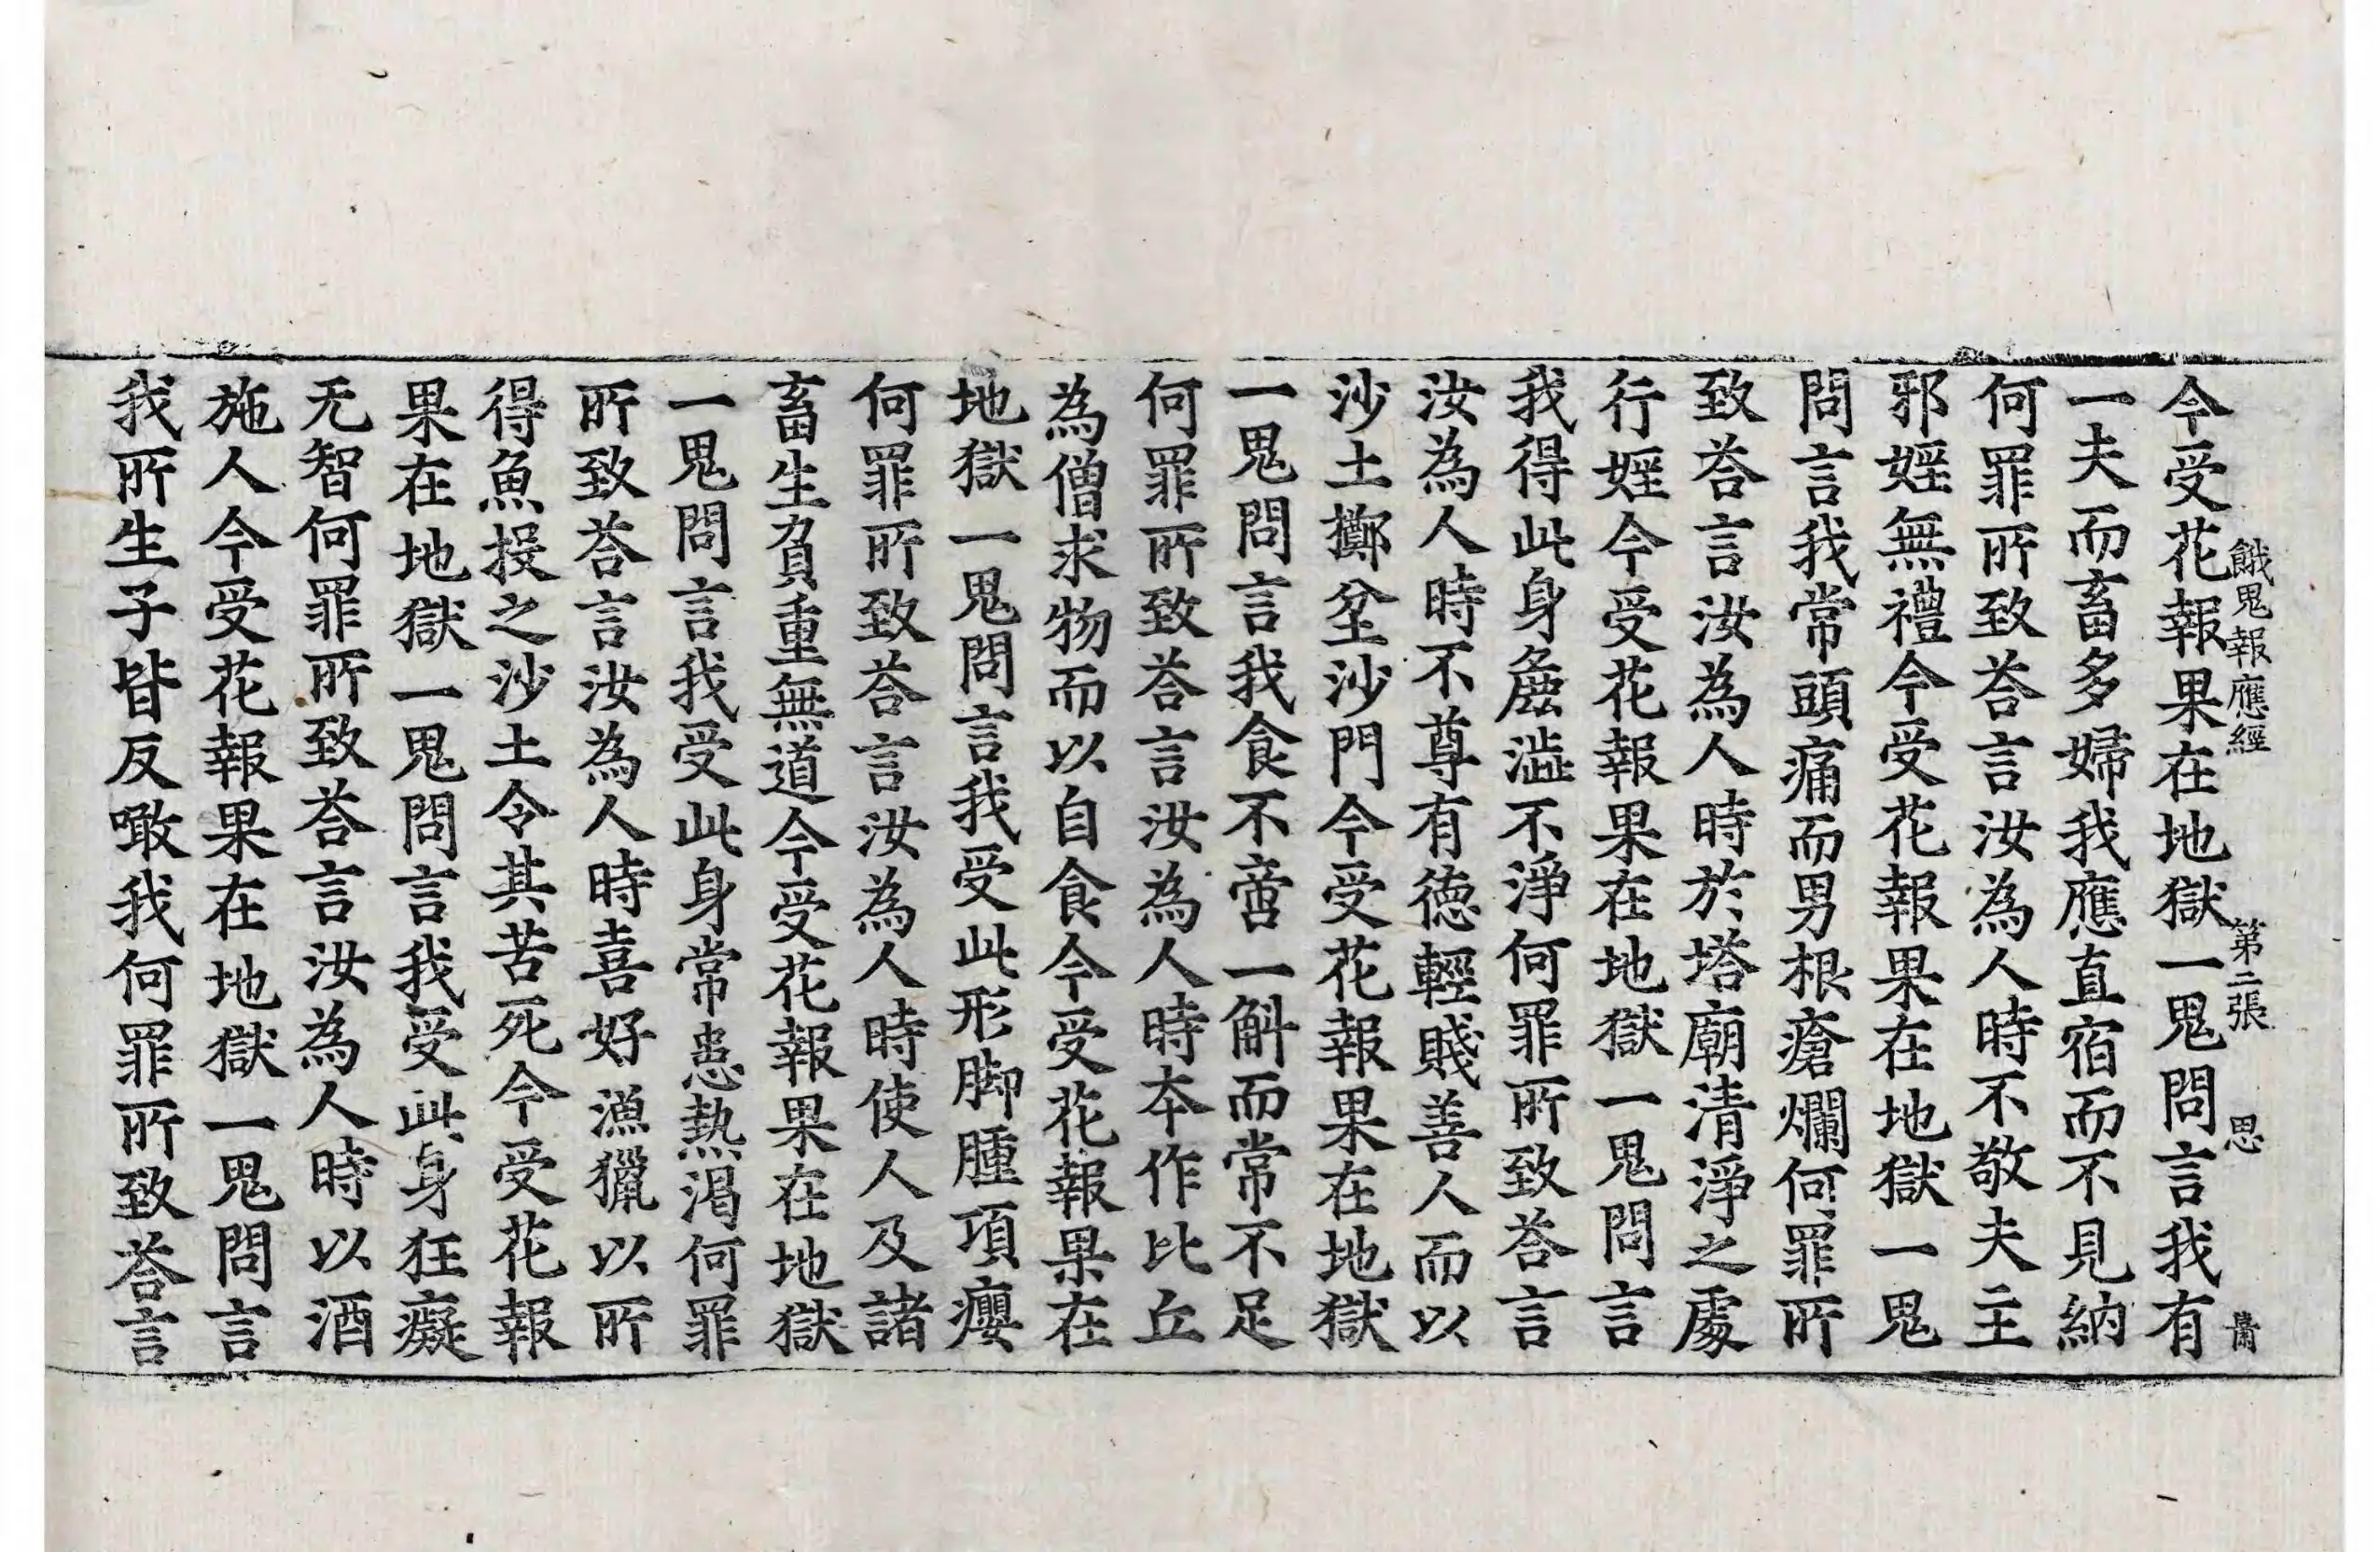 餓鬼報應經 第二張 思
今受花報果在地獄一鬼問言我有
一夫而畜多婦我應直宿而不見納
何罪所致荅言汝為人時不敬夫主
邪婬無禮今受花報果在地獄一鬼
問言我常頭痛而男根瘡爛何罪所
致荅言汝為人時於塔廟清淨之處
行婬今受花報果在地獄一鬼問言
我得此身麁澁不淨何罪所致荅言
汝為人時不尊有德輕賤善人而以
沙土擲坌沙門今受花報果在地獄
一鬼問言我食不啻一斛而常不足
何罪所致荅言汝為人時夲作比丘
為僧求物而以自食今受花報果在
地獄一鬼問言我受此形脚腫項癭
何罪所致荅言汝為人時使人及諸
畜生負重無道今受花報果在地獄
一鬼問言我受此身常患熱渴何罪
所致荅言汝為人時喜好漁獵以所
得魚投之沙土令其苦死今受花報
果在地獄一鬼問言我受此身狂癡
无智何罪所致荅言汝為人時以酒
施人今受花報果在地獄一鬼問言
我所生子皆反噉我何罪所致荅言